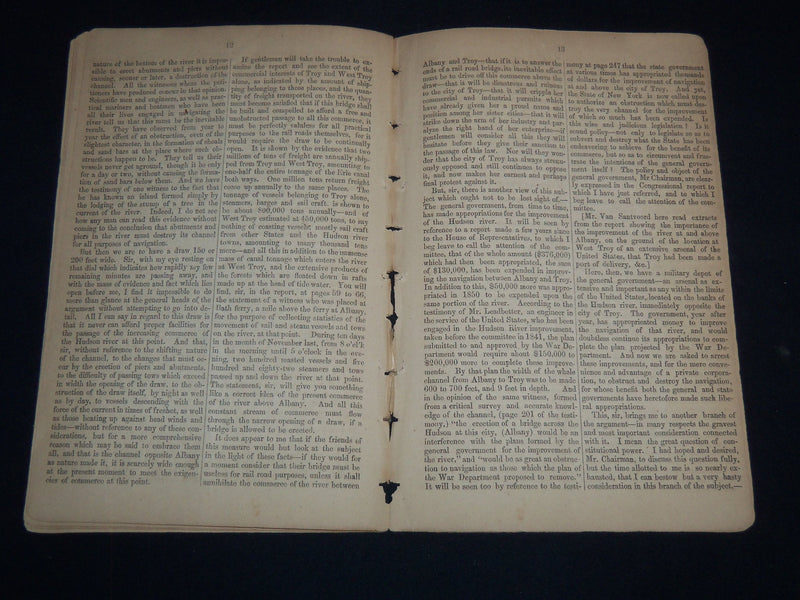 12
nature of the bottom of the river it is impos-
sible to erect abutments and piers without
causing, sooner or later, a destruction of the
channel. All the witnesses whom the peti-
tioners have produced concur in that opinion.
Scientific men and engineers, as well as prac-
tical mariners and boatmen who have been
all their lives engaged in navigating the
river tell us that this must be the inevitable
result. They have observed from year to
year the effect of an obstruction, even of the
slightest character, in the formation of shoals
and sand bars at the place where such ob-
structions happen to be. They tell us their
vessels never get aground, though it be only
for a day or two, without causing the forma-
tion of sand bars below them. And we have
the testimony of one witness to the fact that
he has known an island formed simply by
the lodging of the stump of a tree in the
current of the river. Indeed, I do not see
how any man can read this evidence without
coming to the conclusion that abutments and
piers in the river must destroy its channel
for all purposes of navigation.
But then we are to have a draw 150 or
200 feet wide. Sir, with my eye resting on
that dial which indicates how rapidly my few
remaining minutes are passing away, and
with the mass of evidence and fact which lies
open before me, I find it impossible to do
more than glance at the general heads of the
argument without attempting to go into de-
tail. All I can say in regard to this draw is
that it never can afford proper facilities for
the passage of the increasing commerce of
the Hudson river at this point. And that,
sir, without reference to the shifting nature
of the channel, to the changes that must oc-
cur by the erection of piers and abutments,
to the difficulty of passing tows which exceed
in width the opening of the draw, to the ob-
struction of the draw itself, by night as well
as by day, to vessels descending with the
force of the current in times of freshet, as well
as those beating up against head winds and
tides—without reference to any of these con-
siderations, but for a more comprehensive
reason which may be said to embrace them
all, and that is the channel opposite Albany
as nature made it, it is scarcely wide enough
at the present moment to meet the exigen-
cies of commerce at this point.
If gentlemen will take the trouble to ex-
amine the report and see the extent of the
commercial interests of Troy and West Troy
alone, as indicated by the amount of ship-
ping belonging to those places, and the quan-
tity of freight transported on the river, they
must become satisfied that if this bridge shall
be built and compelled to afford a free and
unobstructed passage to all this commerce, it
must be perfectly valueless for all practical
purposes to the rail roads themselves, for it
would require the draw to be continually
open. It is shown by the evidence that two
millions of tons of freight are annually ship-
ped from Troy and West Troy, amounting to
one-half the entire tonnage of the Erie canal
both ways. One million tons return freight
come up annually to the same places. The
tonnage of vessels belonging to Troy alone,
steamers, barges and sail craft, is shown to
be about 800,000 tons annually—and of
West Troy estimated at 450,000 tons, to say
nothing of coasting vessels; mostly sail craft
from other States and the Hudson river
towns, amounting to many thousand tons
more—and all this in addition to the immense
mass of canal tonnage which enters the river
at West Troy, and the extensive products of
the forests which are floated down in rafts
made up at the head of tide water. You will
find, sir, in the report, at pages 59 to 66,
the statement of a witness who was placed at
Bath ferry, a mile above the ferry at Albany,
for the purpose of collecting statistics of the
movement of sail and steam vessels and tows
on the river, at that point. During ten days
in the month of November last, from 8 o'cl'k
in the morning until 5 o'clock in the eve-
ning, two hundred masted vessels and five
hundred and eighty-two steamers and tows
passed up and down the river at that point.
The statement, sir, will give you something
like a correct idea of the present commerce
of the river above Albany. And all this
constant stream of commerce must flow
through the narrow opening of a draw, if a
bridge is allowed to be erected.
It does appear to me that if the friends of
this measure would but look at the subject
in the light of these facts—if they would for
a moment consider that their bridge must be
useless for rail road purposes, unless it shall
annihilate the commerce of the river between
13
Albany and Troy—that if it is to answer the
ends of a rail road bridge, its inevitable effect
must be to drive off this commerce above the
draw—that it will be disastrous and ruinous
to the city of Troy—that it will cripple her
commercial and industrial pursuits which
have already given her a proud name and
position among her sister cities—that it will
strike down the arm of her industry and par-
alyze the right hand of her enterprise—if
gentlemen will consider all this they will
hesitate before they give their sanction to
the passage of this law. Nor will they won-
der that the city of Troy has always strenu-
ously opposed and still continues to oppose
it, and now makes her earnest and perhaps
final protest against it.
But, sir, there is another view of this sub-
ject which ought not to be lost sight of.—
The general government, from time to time,
has made appropriations for the improvement
of the Hudson river. It will be seen by
reference to a report made a few years since
to the House of Representatives, to which I
beg leave to call the attention of the com-
mittee, that of the whole amount ($376,000)
which had then been appropriated, the sum
of $130,000, has been expended in improv-
ing the navigation between Albany and Troy.
In addition to this, $50,000 more was appro-
priated in 1850 to be expended upon the
same portion of the river. According to the
testimony of Mr. Leadbetter, an engineer in
the service of the United States, who has been
engaged in the Hudson River improvement,
taken before the committee in 1841, the plan
submitted to and approved by the War De-
partment would require about $150,000 to
$200,000 more to complete these improve-
ments. By that plan the width of the whole
channel from Albany to Troy was to be made
600 to 700 feet, and 9 feet in depth. And
in the opinion of the same witness, formed
from a critical survey and accurate knowl-
edge of the channel, (page 201 of the testi-
mony,) "the erection of a bridge across the
Hudson at this city, (Albany) would be an
interference with the plans formed by the
general government for the improvement of
the river," and "would be as great an obstruc-
tion to navigation as those which the plan of
the War Department proposed to remove."
It will be seen too by reference to the testi-
mony at page 247 that the state government
at various times has appropriated thousands
of dollars for the improvement of navigation
at and above the city of Troy. And yet,
the State of New York is now called upon
to authorize an obstruction which must des-
troy the very channel for the improvement
of which so much has been expended. Is
this wise and judicious legislation? Is it
sound policy—not only to legislate so as to
subvert and destroy what the State has been
endeavoring to achieve for the benefit of its
commerce, but so as to circumvent and frus-
trate the intentions of the general govern-
ment itself? The policy and object of the
general government, Mr. Chairman, are clear-
ly expressed in the Congressional report to
which I have just referred, and to which I
beg leave to call the attention of the com-
mittee.
[Mr. Van Santvoord here read extracts
from the report showing the importance of
the improvement of the river at and above
Albany, on the ground of the location at
West Troy of an extensive arsenal of the
United States, that Troy had been made a
port of delivery, &c.]
Here, then, we have a military depot of
the general government—an arsenal as ex-
tensive and important as any within the limits
of the United States, located on the banks of
the Hudson river, immediately opposite the
city of Troy. The government, year after
year, has appropriated money to improve
the navigation of that river, and would
doubtless continue its appropriations to com-
plete the plan projected by the War De-
partment. And now we are asked to arrest
these improvements, and for the mere conve-
nience and advantage of a private corpora-
tion, to obstruct and destroy the navigation,
for whose benefit both the general and state
governments have heretofore made such libe-
ral appropriations.
This, sir, brings me to another branch of
the argument—in many respects the gravest
and most important consideration connected
with it. I mean the great question of con-
stitutional power. I had hoped and desired,
Mr. Chairman, to discuss this question fully,
but the time allotted to me is so nearly ex-
hausted, that I can bestow but a very hasty
consideration in this branch of the subject.—